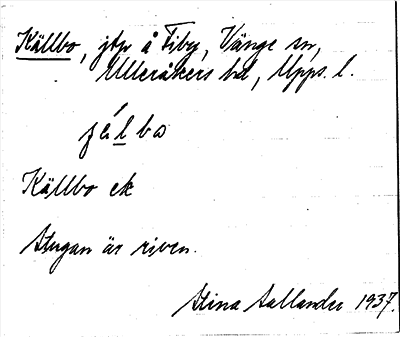 Källbo, jtp å Tiby, Vänge sn,
Ulleråkers hd, Upps. l.
Källbo ek
Stugan är riven.
Stina Sallander 1937.